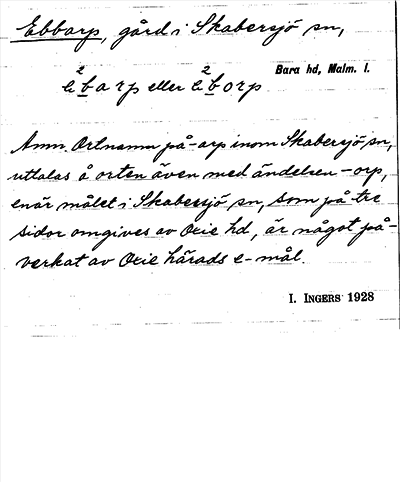 Ebbarp, gård i Skabersjö sn,
Bara hd, Malm. l.
è²b̲arp eller è²b̲orp
Anm. Ortnamn på -arp inom Skabersjö sn,
uttalas å orten även med ändelsen -orp,
enär målet i Skabersjö sn, som på tre
sidor omgives av Oxie hd, är något på-
verkat av Oxie härads e-mål.
I. INGERS 1928